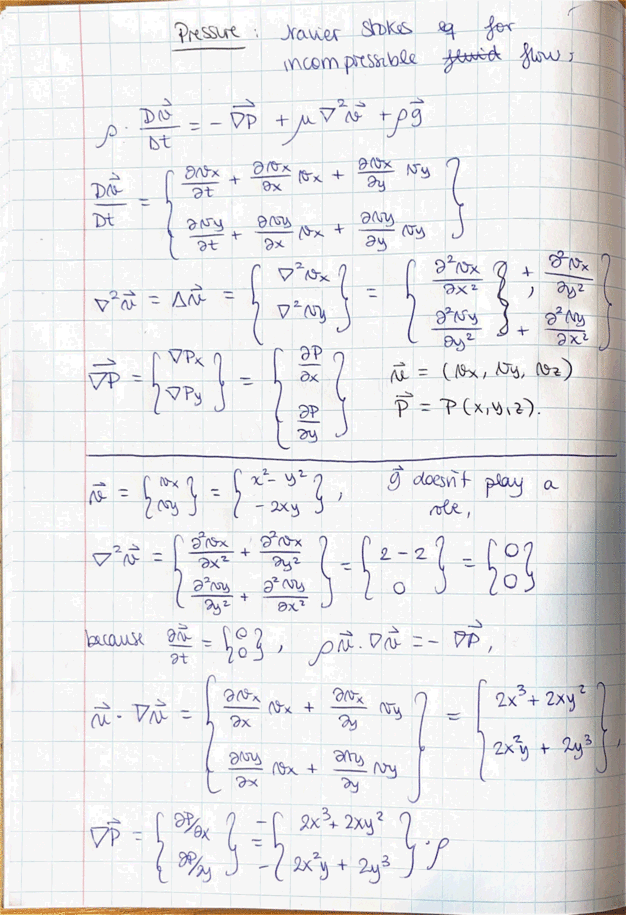 Pressure : Navier Stokes eq for
incompressible fluid flow,
ρ · Dv⃗/Dt = - ∇⃗P + μ ∇²v⃗ + ρg⃗
Dv⃗/Dt = { ∂vx/∂t + ∂vx/∂x vx + ∂vx/∂y vy
∂vy/∂t + ∂vy/∂x vx + ∂vy/∂y vy }
∇²v⃗ = Δv⃗ = { ∇²vx ∇²vy } = { ∂²vx/∂x² + ∂²vx/∂y² ,
∂²vy/∂y² + ∂²vy/∂x² }
∇⃗P = { ∇Px ∇Py } = { ∂P/∂x ∂P/∂y } v⃗ = (vx, vy, vz)
P⃗ = P(x,y,z).
v⃗ = { vx vy } = { x² - y² - 2xy } , g⃗ doesn't play a
role,
∇²v⃗ = { ∂²vx/∂x² + ∂²vx/∂y² ∂²vy/∂y² + ∂²vy/∂x² } = { 2 - 2 0 } = { 0 0 }
because ∂v⃗/∂t = { 0 0 } , ρv⃗ · ∇v⃗ = - ∇⃗P ,
v⃗ · ∇v⃗ = { ∂vx/∂x vx + ∂vx/∂y vy ∂vy/∂x vx + ∂vy/∂y vy } = { 2x³ + 2xy² 2x²y + 2y³ } ,
∇P⃗ = { ∂P/∂x ∂P/∂y } = { - 2x³ + 2xy² - 2x²y + 2y³ } · ρ